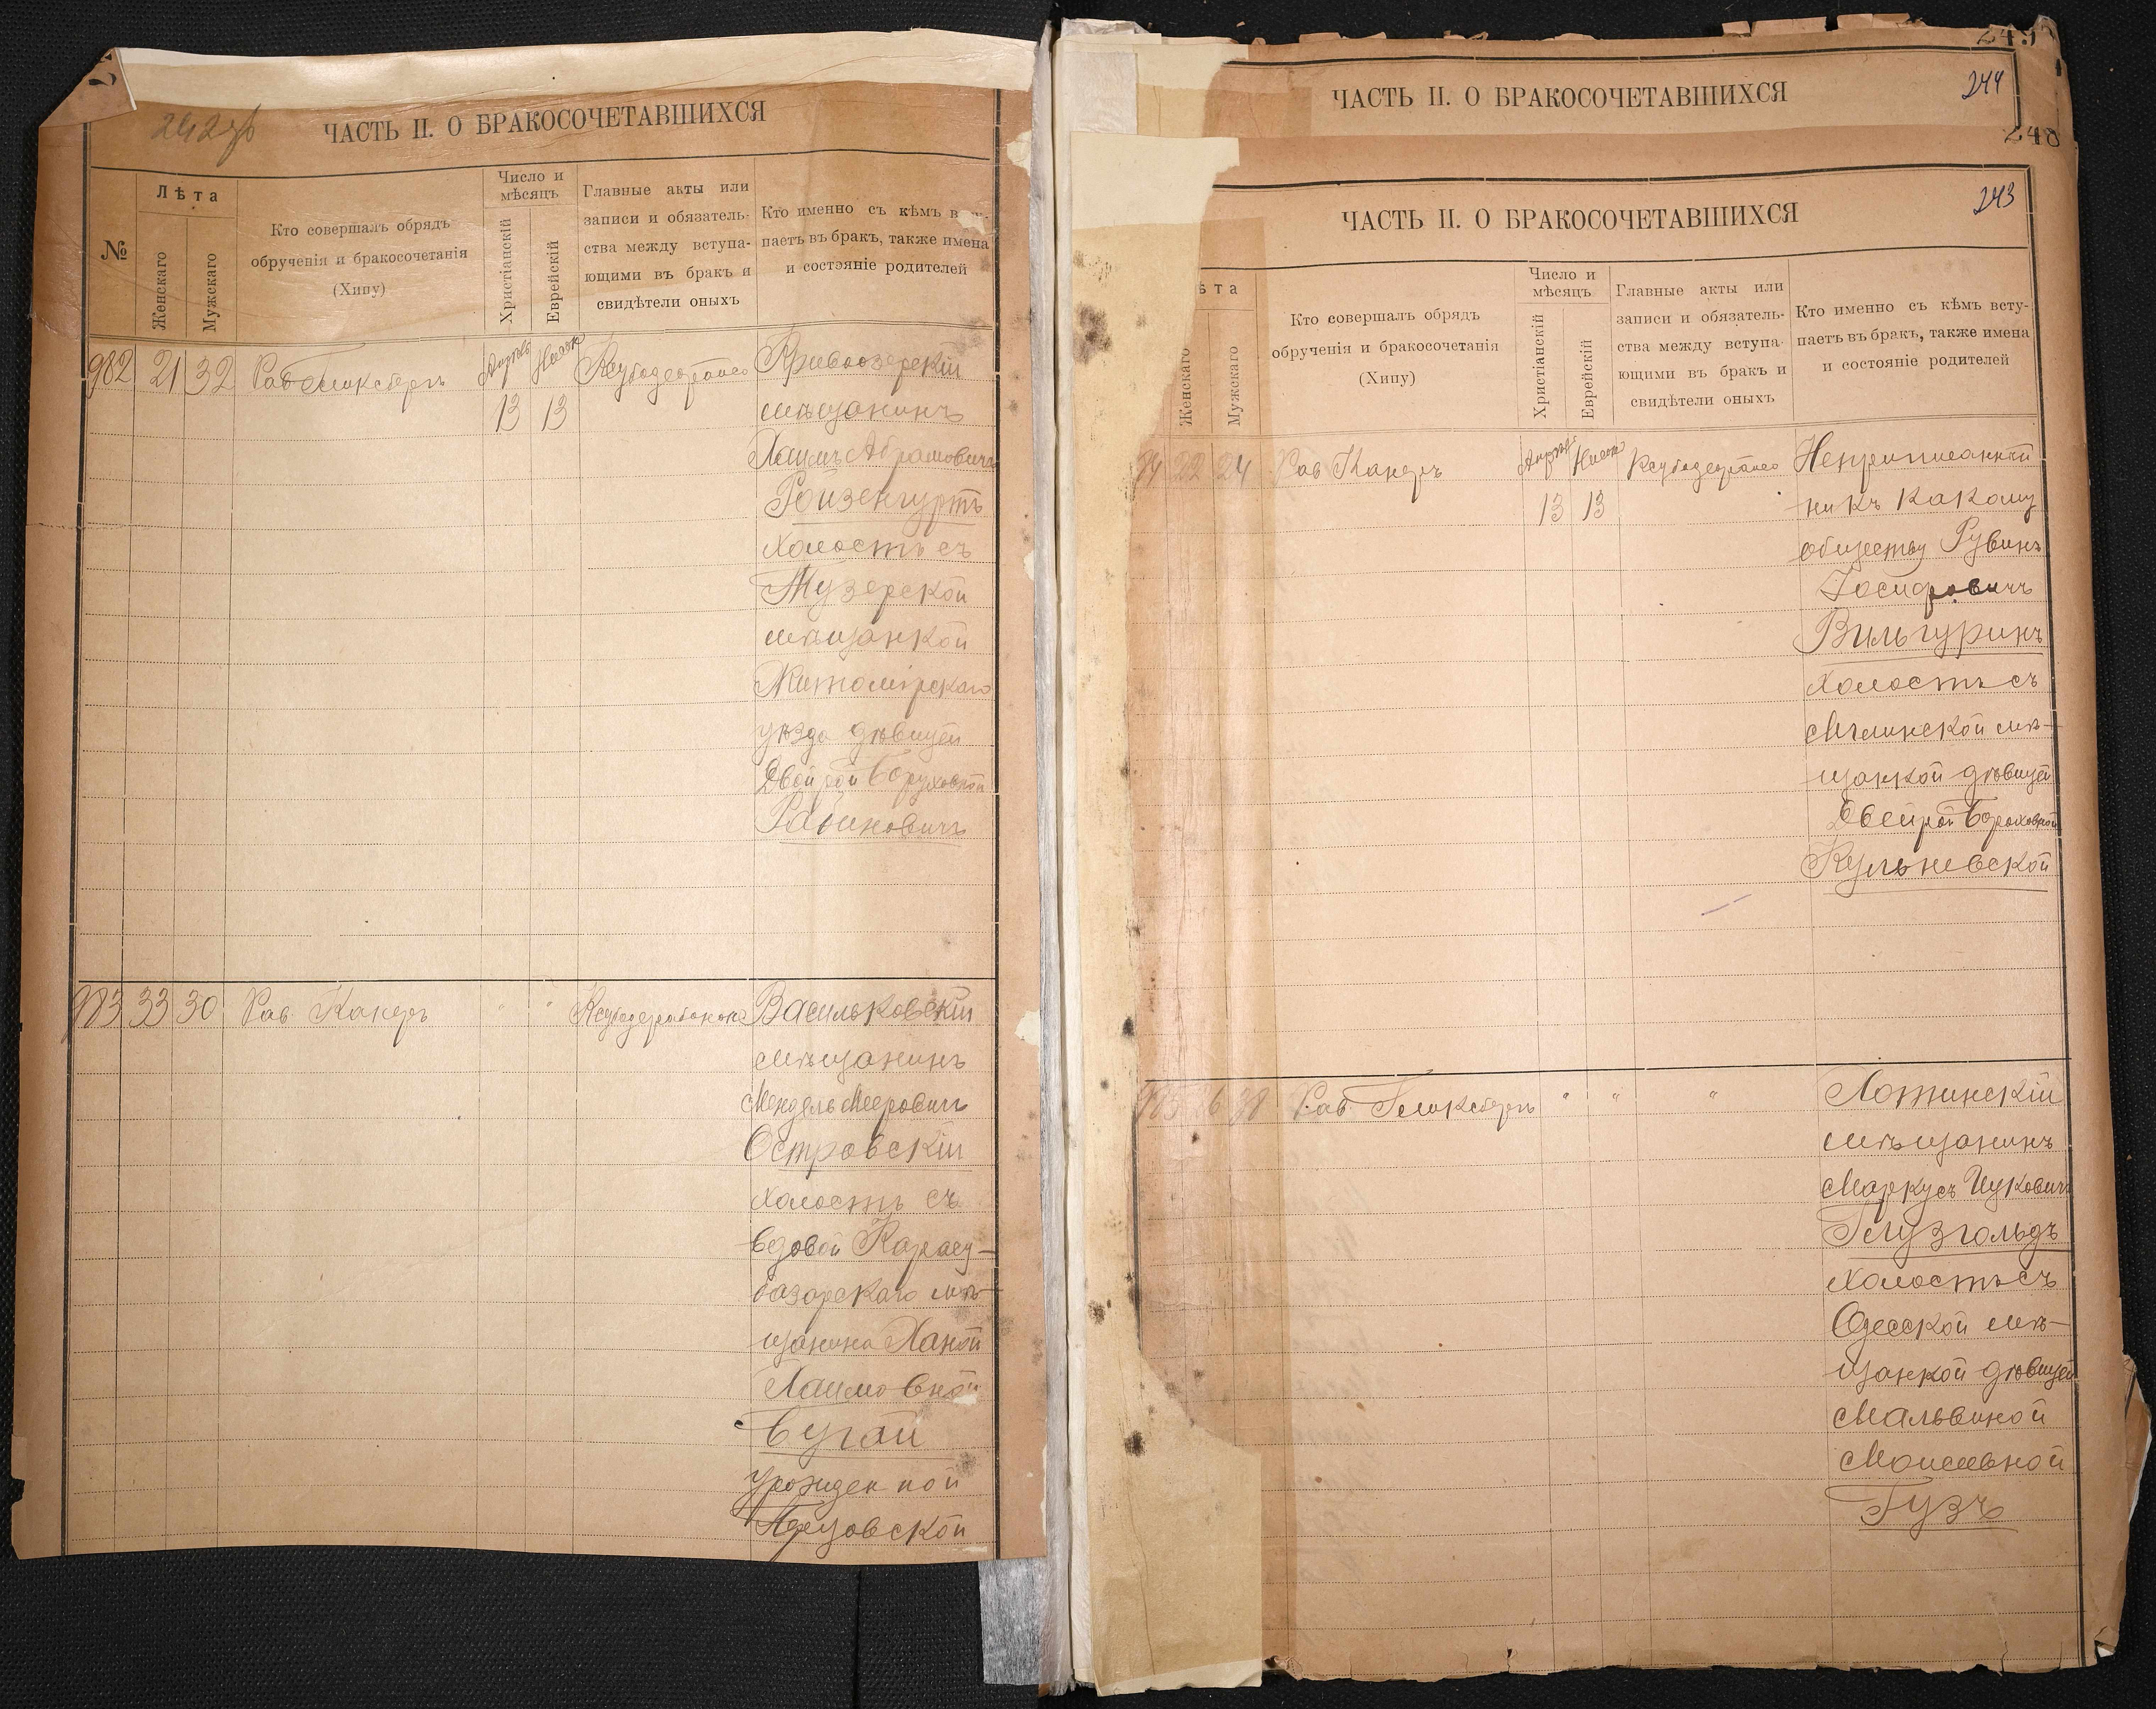 242 об
ЧАСТЬ II. О БРАКОСОЧЕТАВШИХСЯ
№
Лѣта
Женскаго
Мужскаго
Кто совершалъ обрядъ
обрученія и бракосочетанія
(Хипу)
Число и
мѣсяцъ
Христіанскій
Еврейскій
Главные акты или
записи и обязатель-
ства между вступа-
ющими въ бракъ и
свидѣтели оныхъ
Кто именно съ кѣмъ
паетъ въ бракъ, также имена
и состояніе родителей
982 21 32 Рав Гликсбергъ
13 13
Кривоозерскій
мѣщанинъ
Хаимъ Абрамовичъ
Ройзенгуртъ
холостъ съ
мѣщанкой
Житомірскаго
уѣзда дѣвицей
Двойрой Боруховной
Рабиновичъ
983 33 30 Рав. Канеръ " "
Васильковскій
мѣщанинъ
Мендель Мееровичъ
Островскій
холостъ съ
вдовой Карасу-
базарскаго мѣ-
щанина Ханой
Хаимовной
Бугай
урожденной
249
ЧАСТЬ II. О БРАКОСОЧЕТАВШИХСЯ
244
248
243
ЧАСТЬ II. О БРАКОСОЧЕТАВШИХСЯ
ѣта
Женскаго
Мужскаго
Кто совершалъ обрядъ
обрученія и бракосочетанія
(Хипу)
Число и
мѣсяцъ
Христіанскій
Еврейскій
Главные акты или
записи и обязатель-
ства между вступа-
ющими въ бракъ и
свидѣтели оныхъ
Кто именно съ кѣмъ всту-
паетъ въ бракъ, также имена
и состояніе родителей
84 22 24 Рав Канеръ
13 13
Неприписанный
ни къ какому
обществу Рувинъ
Іосифовичъ
Вильгуринъ
холостъ съ
Мглинской мѣ-
щанкой дѣвицей
Двейрой Бороховной
Кульневской
985 26 38 Рав. Гликсбергъ " " "
мѣщанинъ
Маркусъ Ицковичъ
Глузгольдъ
холостъ съ
Одесской мѣ-
щанкой дѣвицей
Мальвиной
Моисеевной
Гузъ